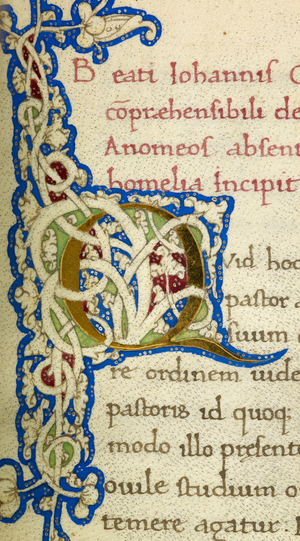 Beati Iohannis C
cōpræhensibili de
Anomeos absen
homelia Incipit
Quid hoc
pastor
suum
re ordinem uide
pastoris id quoq;
modo illo presente
ouile studium o
temere agatur.